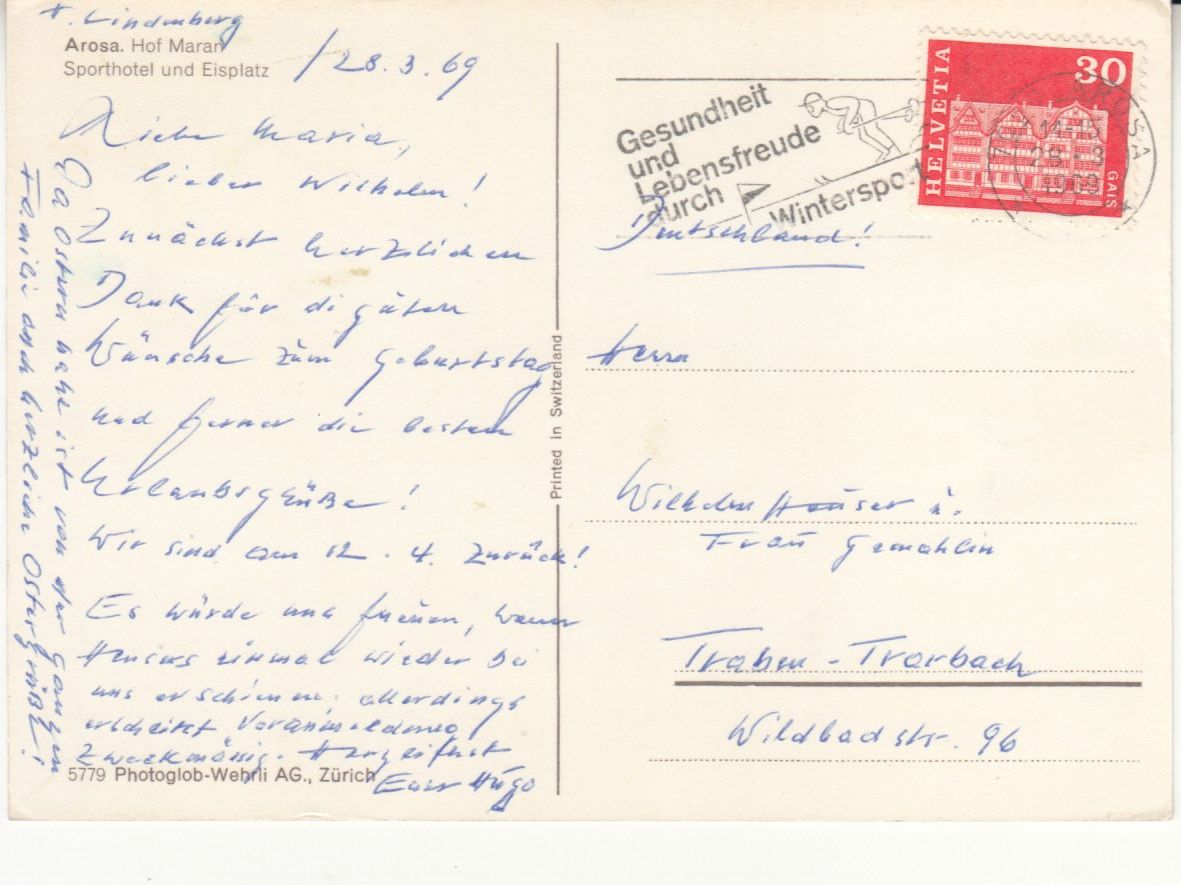 H. Lindenberg
Arosa. Hof Maran
Sporthotel und Eisplatz
/28.3.69
Liebe Maria,
lieber Wilhelm!
Zunächst herzlichen
Dank für di guten
Wünsche zum Geburtstag
und ferner die besten
Urlaubsgrüße!
Wir sind am 12.4. zurück!
Es würde uns freuen, wenn
Heusers einmal wieder bei
uns erschienen; allerdings
erscheint Voranmeldung
zweckmässig. Herzlichst
Euer Hugo
Da Ostern nahe ist von der ganzen
Familie auch herzliche Ostergrüße!
5779 Photoglob-Wehrli AG., Zürich
Printed in Switzerland
Gesundheit
und
Lebensfreude
durch
Wintersport
HELVETIA
30
GAIS
AROSA
28.3
1969
Deutschland!
Herrn
Wilhelm Heuser u.
Frau Gemahlin
Traben-Trarbach
Wildbadstr. 96